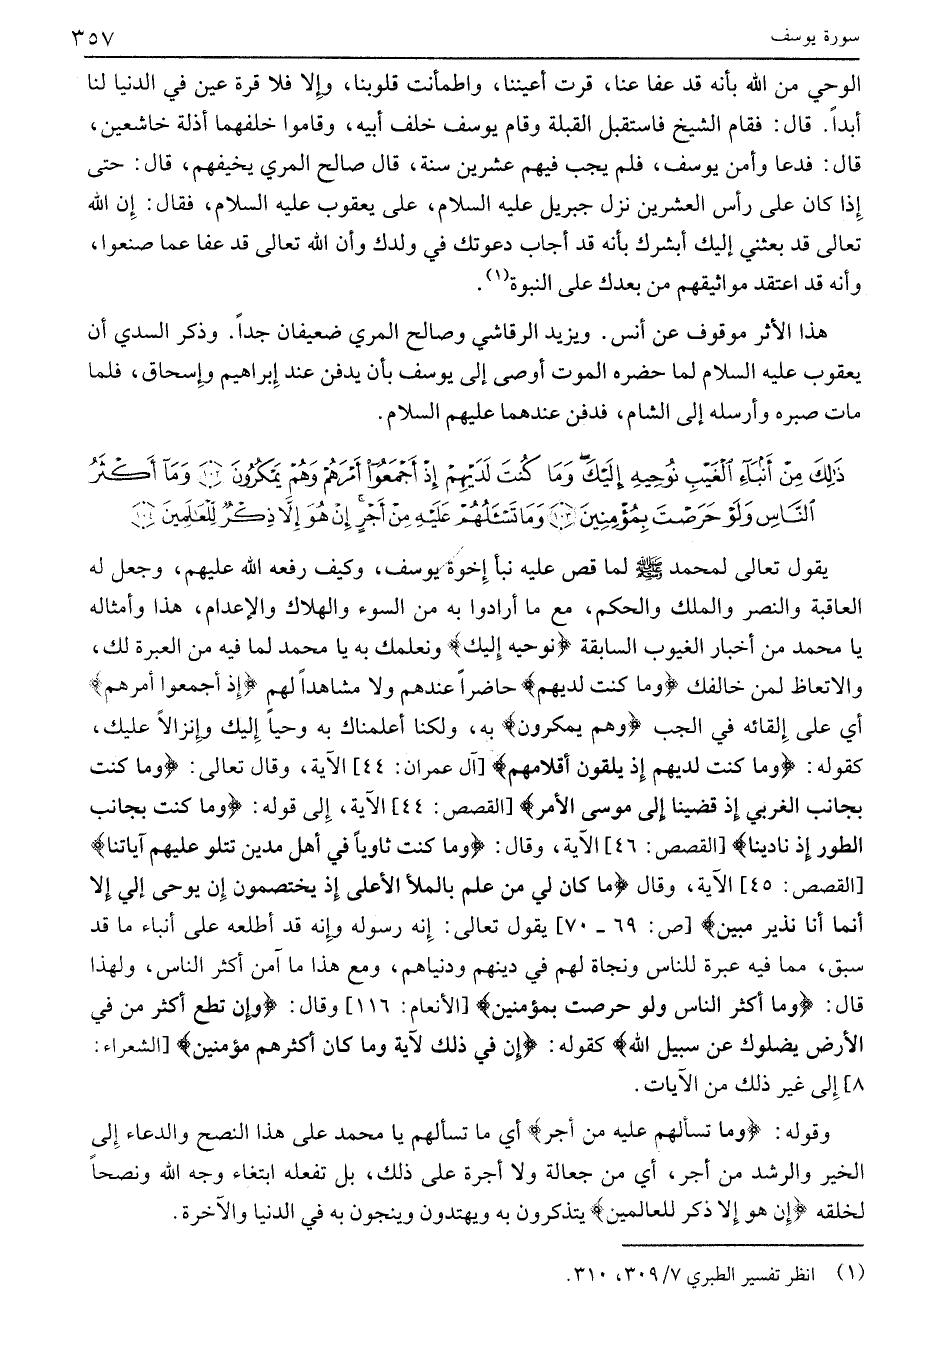 سورة يوسف ٣٥٧
الوحي من الله بأنه قد عفا عنا، قرت أعيننا، واطمأنت قلوبنا، وإلا فلا قرة عين في الدنيا لنا
أبداً. قال: فقام الشيخ فاستقبل القبلة وقام يوسف خلف أبيه، وقاموا خلفهما أذلة خاشعين،
قال: فدعا وأمن يوسف، فلم يجب فيهم عشرين سنة، قال صالح المري يخيفهم، قال: حتى
إذا كان على رأس العشرين نزل جبريل عليه السلام، على يعقوب عليه السلام، فقال: إن الله
تعالى قد بعثني إليك أبشرك بأنه قد أجاب دعوتك في ولدك وأن الله تعالى قد عفا عما صنعوا،
وأنه قد اعتقد مواثيقهم من بعدك على النبوة(١).
هذا الأثر موقوف عن أنس. ويزيد الرقاشي وصالح المري ضعيفان جداً. وذكر السدي أن
يعقوب عليه السلام لما حضره الموت أوصى إلى يوسف بأن يدفن عند إبراهيم وإسحاق، فلما
مات صبره وأرسله إلى الشام، فدفن عندهما عليهم السلام.
ذَٰلِكَ مِنْ أَنۢبَآءِ ٱلْغَيْبِ نُوحِيهِ إِلَيْكَ ۖ وَمَا كُنتَ لَدَيْهِمْ إِذْ أَجْمَعُوٓا۟ أَمْرَهُمْ وَهُمْ يَمْكُرُونَ ﴿١٠٢﴾ وَمَآ أَكْثَرُ
ٱلنَّاسِ وَلَوْ حَرَصْتَ بِمُؤْمِنِينَ ﴿١٠٣﴾ وَمَا تَسْـَٔلُهُمْ عَلَيْهِ مِنْ أَجْرٍ ۚ إِنْ هُوَ إِلَّا ذِكْرٌ لِّلْعَـٰلَمِينَ ﴿١٠٤﴾
يقول تعالى لمحمد ﷺ لما قص عليه نبأ إخوة يوسف، وكيف رفعه الله عليهم، وجعل له
العاقبة والنصر والملك والحكم، مع ما أرادوا به من السوء والهلاك والإعدام، هذا وأمثاله
يا محمد من أخبار الغيوب السابقة ﴿نوحيه إليك﴾ ونعلمك به يا محمد لما فيه من العبرة لك،
والاتعاظ لمن خالفك ﴿وما كنت لديهم﴾ حاضراً عندهم ولا مشاهداً لهم ﴿إذ أجمعوا أمرهم﴾
أي على إلقائه في الجب ﴿وهم يمكرون﴾ به، ولكنا أعلمناك به وحياً إليك وإنزالاً عليك،
كقوله: ﴿وما كنت لديهم إذ يلقون أقلامهم﴾ [آل عمران: ٤٤] الآية، وقال تعالى: ﴿وما كنت
بجانب الغربي إذ قضينا إلى موسى الأمر﴾ [القصص: ٤٤] الآية، إلى قوله: ﴿وما كنت بجانب
الطور إذ نادينا﴾ [القصص: ٤٦] الآية، وقال: ﴿وما كنت ثاوياً في أهل مدين تتلو عليهم آياتنا﴾
[القصص: ٤٥] الآية، وقال ﴿ما كان لي من علم بالملأ الأعلى إذ يختصمون إن يوحى إلي إلا
أنما أنا نذير مبين﴾ [ص: ٦٩ ـ ٧٠] يقول تعالى: إنه رسوله وإنه قد أطلعه على أنباء ما قد
سبق، مما فيه عبرة للناس ونجاة لهم في دينهم ودنياهم، ومع هذا ما آمن أكثر الناس، ولهذا
قال: ﴿وما أكثر الناس ولو حرصت بمؤمنين﴾ [الأنعام: ١١٦] وقال: ﴿وإن تطع أكثر من في
الأرض يضلوك عن سبيل الله﴾ كقوله: ﴿إن في ذلك لآية وما كان أكثرهم مؤمنين﴾ [الشعراء:
٨] إلى غير ذلك من الآيات.
وقوله: ﴿وما تسألهم عليه من أجر﴾ أي ما تسألهم يا محمد على هذا النصح والدعاء إلى
الخير والرشد من أجر، أي من جعالة ولا أجرة على ذلك، بل تفعله ابتغاء وجه الله ونصحاً
لخلقه ﴿إن هو إلا ذكر للعالمين﴾ يتذكرون به ويهتدون وينجون به في الدنيا والآخرة.
(١) انظر تفسير الطبري ٣٠٩/٧، ٣١٠.